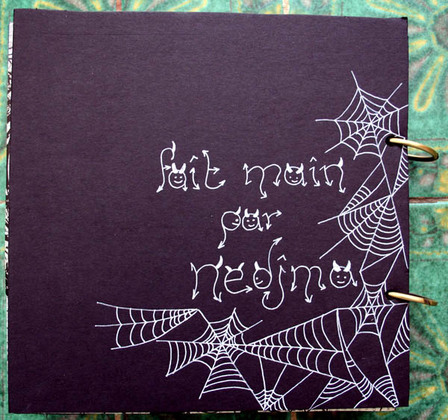 faît maîn
par
nedjma